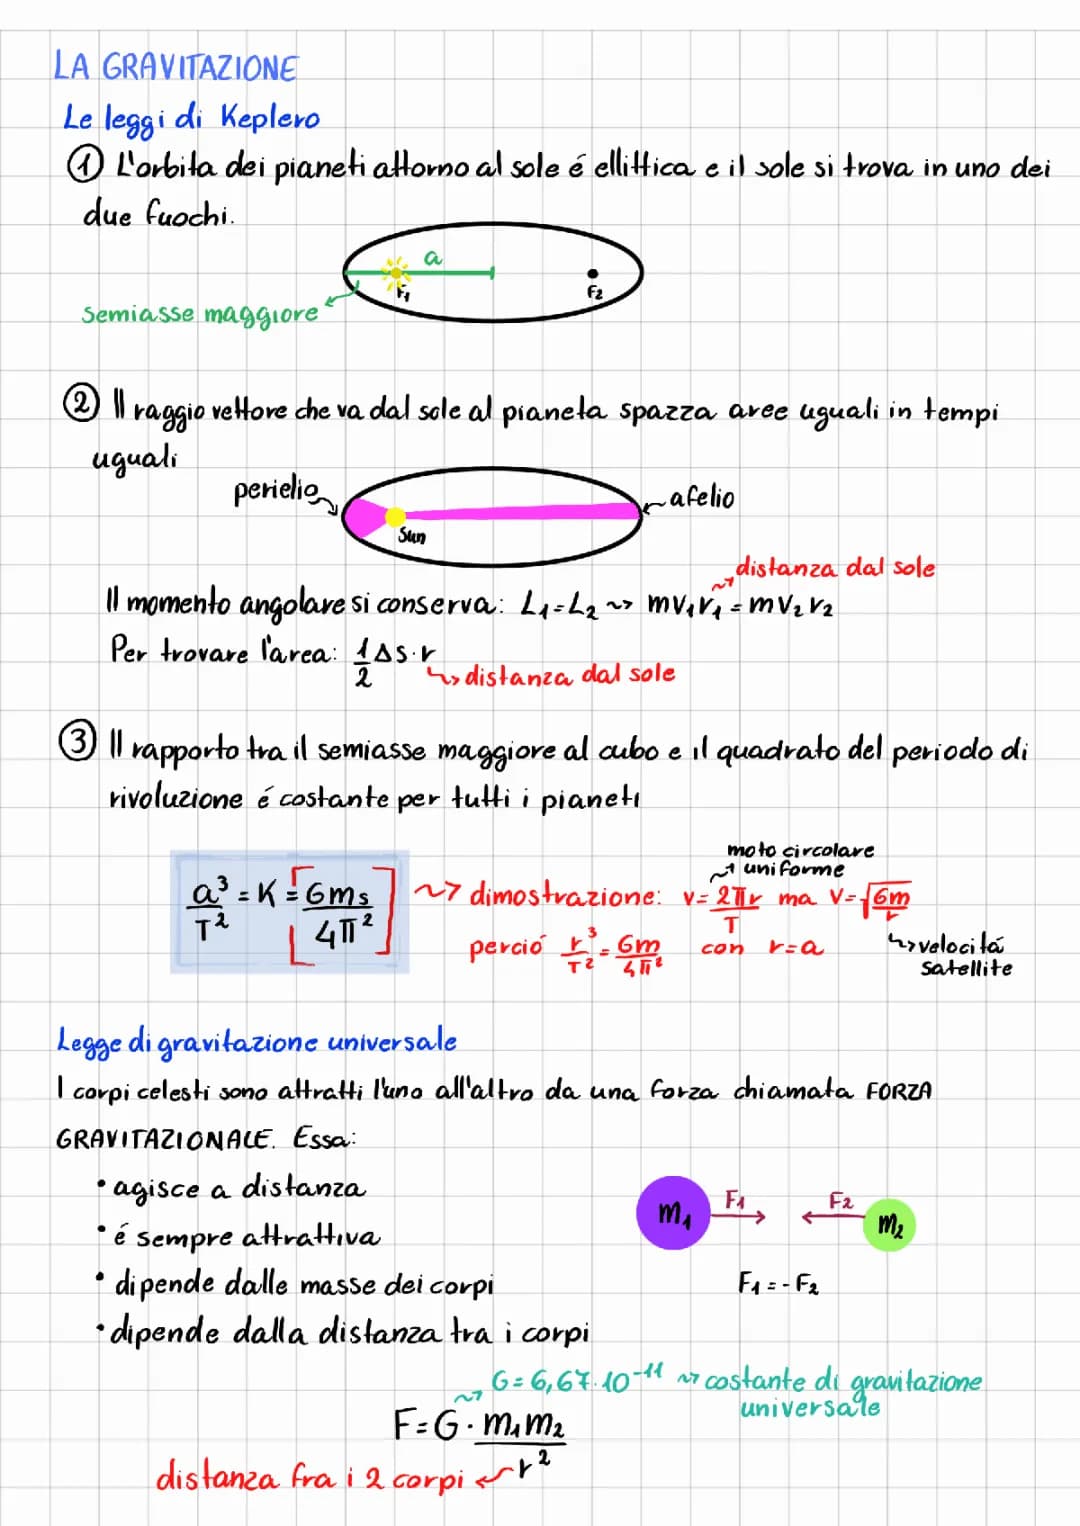 LA GRAVITAZIONE
Le leggi di Keplero
① L'orbita dei pianeti attorno al sole é ellittica e il sole si trova in uno dei
due fuochi.
a
F1
F2
semiasse maggiore
② Il raggio vettore che va dal sole al pianeta spazza aree uguali in tempi
uguali
perielio
afelio
Sun
distanza dal sole
Il momento angolare si conserva: L1=L2 ~> mv1r1 = mv2r2
Per trovare l'area: 1/2 Δs·r
↳ distanza dal sole
③ Il rapporto tra il semiasse maggiore al cubo e il quadrato del periodo di
rivoluzione é costante per tutti i pianeti
moto circolare
uniforme
a³/T² = K = [Gms/4π²] ~> dimostrazione: v = 2πr/T ma v = √(Gm/r)
perció r³/T² = Gm/4π² con r=a
↳ velocitá
satellite
Legge di gravitazione universale
I corpi celesti sono attratti l'uno all'altro da una forza chiamata FORZA
GRAVITAZIONALE. Essa:
• agisce a distanza
• é sempre attrattiva
• dipende dalle masse dei corpi
• dipende dalla distanza tra i corpi
m1 F1 F2 m2
F1 = - F2
G = 6,67·10⁻¹¹ ~> costante di gravitazione
universale
F = G · m1m2/r²
distanza fra i 2 corpi